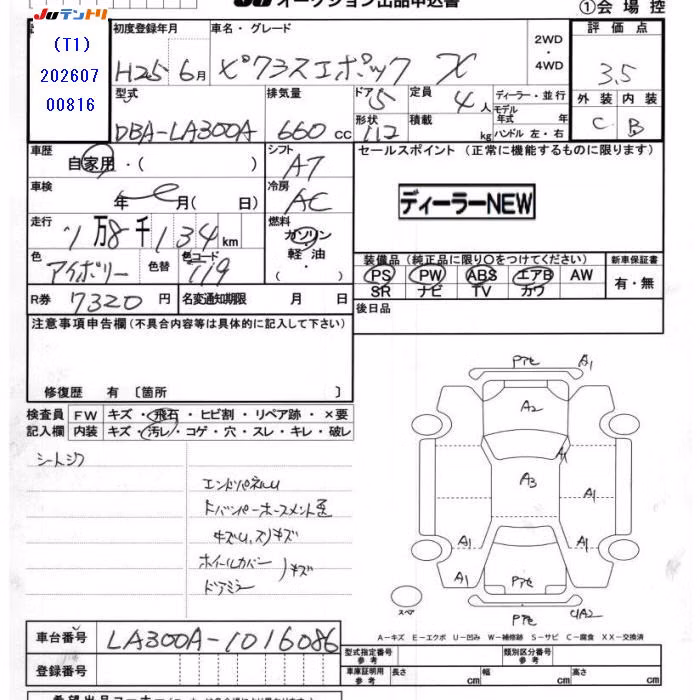 JU オークション出品申込書
①会場控
JUテントリ
(T1)
202607
00816
初度登録年月
H25 6月
車名・グレード
ピクシスエポック X
2WD
・
4WD
評価点
3.5
型式
DBA-LA300A
排気量
660 cc
ドア
5
形状
112
定員
4人
積載
kg
ディーラー・並行
モデル年式 年
ハンドル 左・右
外装 内装
C B
車歴
自家用・( )
シフト
A7
セールスポイント (正常に機能するものに限ります)
ディーラーNEW
車検
年 月( 日)
冷房
AC
走行
万8千134km
燃料
ガソリン
軽油
・
色
アイボリー
色替
色コード
T19
装備品 (純正品に限り○をつけてください)
新車保証書
PS PW ABS エアB AW
SR ナビ TV カワ
有・無
R券 7320円
名変通知期限 月 日
後日品
注意事項申告欄 (不具合内容等は具体的に記入して下さい)
修復歴 有 〔箇所 〕
検査員
記入欄
FW キズ・飛石・ヒビ割・リペア跡・×要
内装 キズ・汚レ・コゲ・穴・スレ・キレ・破レ
エンドパネルU
ホイールカバー
ドアミラー
)キズ
Pアセ A1
A2
A1
A3
A1
A1 A1
A1
Pアセ
Pアセ
スペア
A−キズ E−エクボ U−凹み W−補修跡 S−サビ C−腐食 XX−交換済
車台番号 LA300A-1016086
登録番号
型式指定番号
参考
類別区分番号
参考
車庫証明用
参考
長さ cm 幅 cm 高さ cm